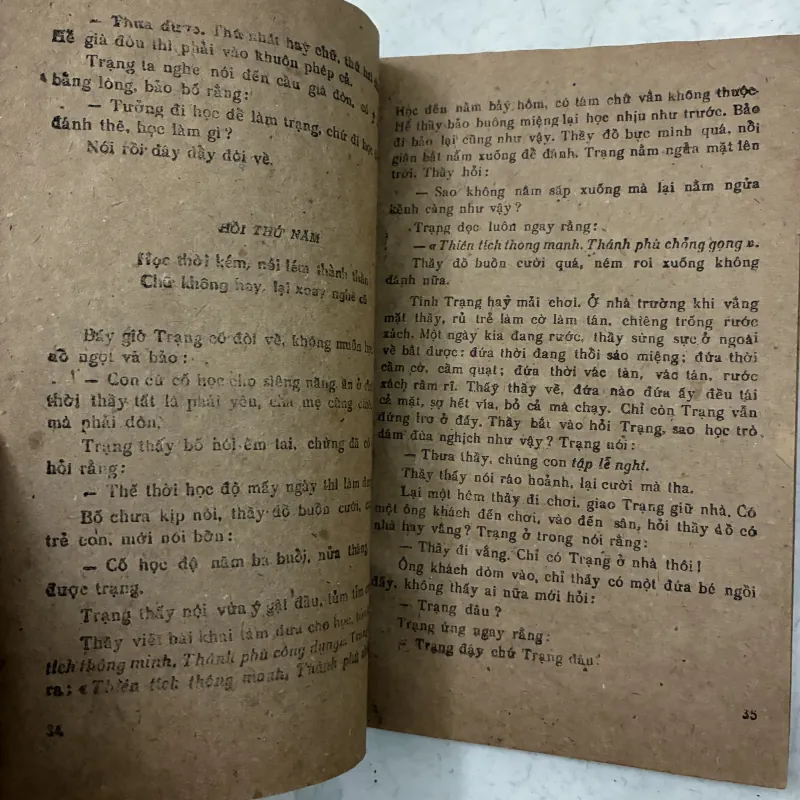 — Thưa được. Thứ nhất hay chữ, thứ hai
Hễ già đòn thì phải vào khuôn phép cả.
Trạng ta nghe nói đến câu già đòn, có ý
bằng lòng, bảo bố rằng:
— Tưởng đi học để làm trạng, chứ đi học
đánh thế, học làm gì?
Nói rồi đây đẩy đòi về.
HỒI THỨ NĂM
Học thời kém, nói lém thành thần
Chữ không hay, lại xoay nghề
Bấy giờ Trạng cứ đòi về, không muốn học,
dỗ ngọt và bảo:
— Con cứ cố học cho siêng năng, ăn ở
thời thầy tất là phải yêu, cha mẹ cũng
mà phải đòn.
Trạng thấy bố nói êm tai, chừng đã
hỏi rằng:
— Thế thời học độ mấy ngày thì làm được
Bố chưa kịp nói, thầy đồ buồn cười,
trẻ con, mới nói bỡn:
— Cố học độ năm ba buổi, nửa tháng
được trạng.
Trạng thấy nói vừa ý gật đầu, tủm tỉm
Thầy viết bài khai tâm đưa cho học,
tích thông minh, Thánh phù công dụng». Trạng
ra: «Thiên tích thông manh, Thánh phù
34
Học đến năm bảy hôm, có tám chữ vẫn không thuộc.
Hễ thầy bảo buông miệng lại học nhịu như trước. Bảo
đi bảo lại cũng như vậy. Thầy đồ bực mình quá, nổi
giận bắt nằm xuống để đánh. Trạng nằm ngửa mặt lên
trời. Thầy hỏi:
— Sao không nằm sấp xuống mà lại nằm ngửa
kềnh càng như vậy?
Trạng đọc luôn ngay rằng:
— «Thiên tích thong manh. Thánh phù chỏng gọng».
Thầy đồ buồn cười quá, ném roi xuống không
đánh nữa.
Tính Trạng hay mải chơi. Ở nhà trường khi vắng
mặt thầy, rủ trẻ làm cờ làm tán, chiêng trống rước
xách. Một ngày kia đang rước, thầy sừng sực ở ngoài
về bắt được: đứa thời đang thổi sáo miệng; đứa thời
cầm cờ, cầm quạt; đứa thời vác tàn, vác tán, rước
xách rầm rĩ. Thấy thầy về, đứa nào đứa ấy đều tái
cả mặt, sợ hết vía, bỏ cả mà chạy. Chỉ còn Trạng vẫn
đứng trơ ở đấy. Thầy bắt vào hỏi Trạng, sao học trò
dám đùa nghịch như vậy? Trạng nói:
— Thưa thầy, chúng con tập lễ nghi.
Thầy thấy nói ráo hoảnh, lại cười mà tha.
Lại một hôm thầy đi chơi, giao Trạng giữ nhà. Có
một ông khách đến chơi, vào đến sân, hỏi thầy đồ có
nhà hay vắng? Trạng ở trong nói rằng:
— Thầy đi vắng. Chỉ có Trạng ở nhà thôi!
Ông khách dòm vào, chỉ thấy có một đứa bé ngồi
đấy, không thấy ai nữa mới hỏi:
— Trạng đâu?
Trạng ứng ngay rằng:
— Trạng đây chứ Trạng đâu!
35